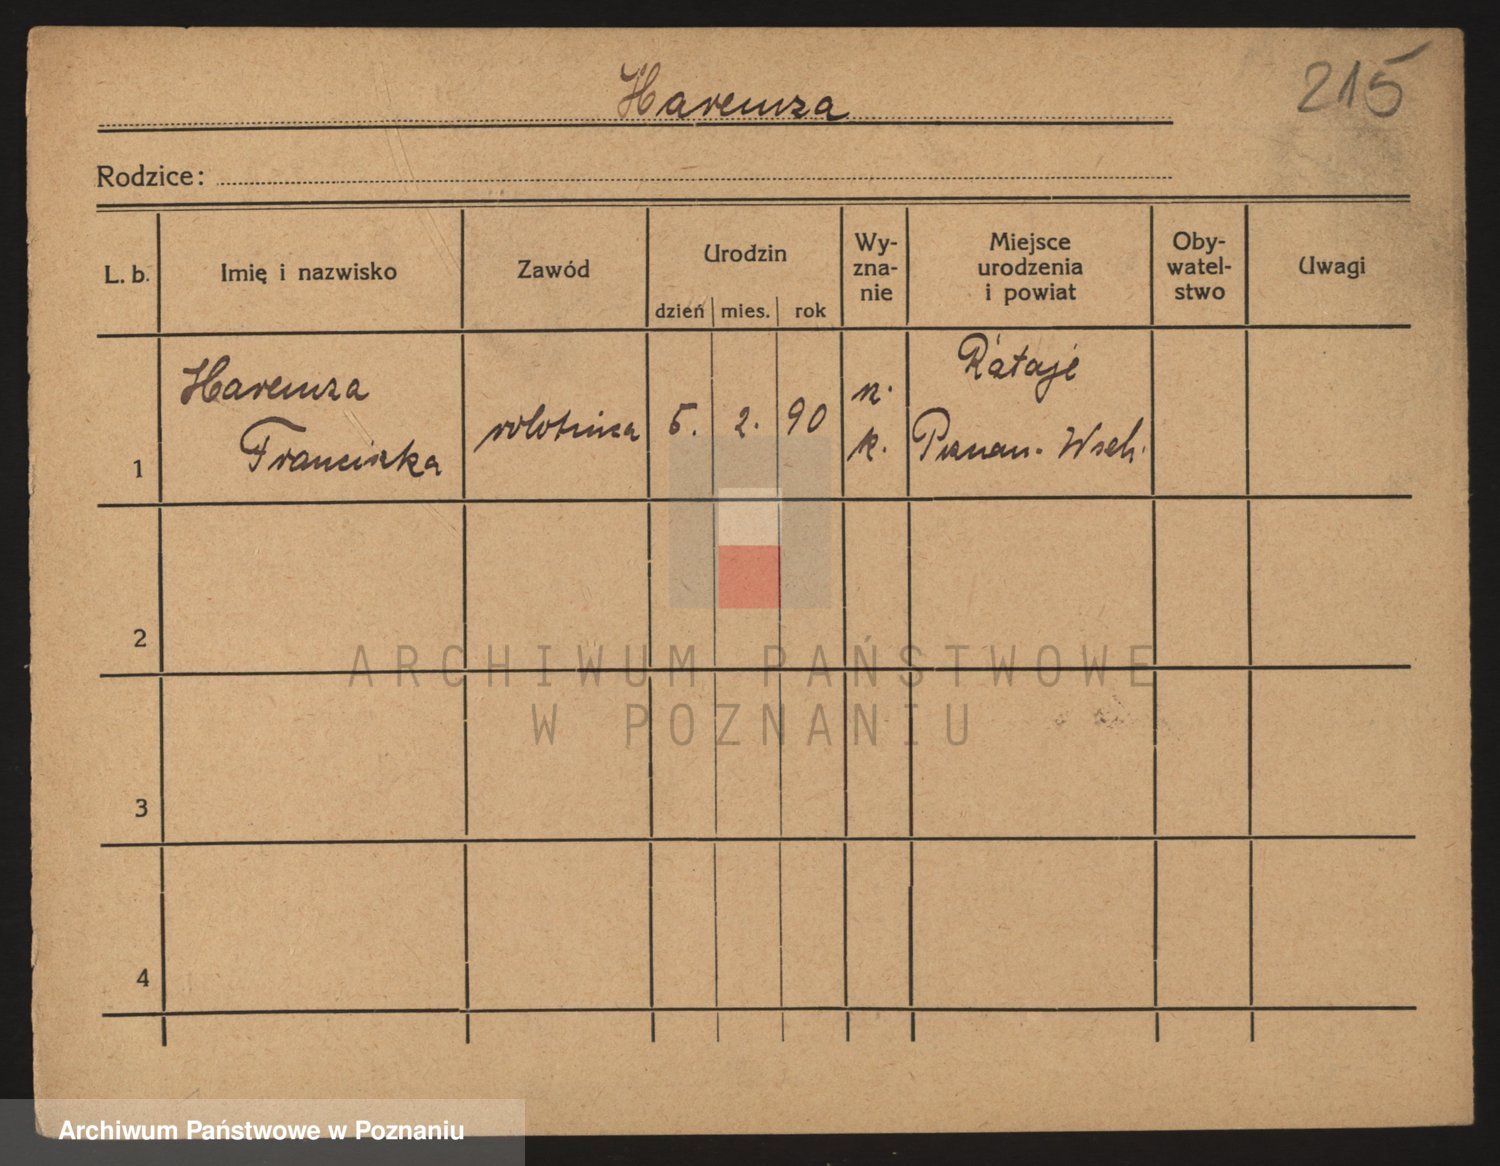 215
Haremza
Rodzice:
L. b.
Imię i nazwisko
Zawód
Urodzin
dzień mies. rok
Wy-
zna-
nie
Miejsce
urodzenia
i powiat
Oby-
watel-
stwo
Uwagi
1
Haremza
Franciszka
robotnica
5. 2. 90
r.
k.
Rataje
Poznań. Wsch.
2
3
4
ARCHIWUM PAŃSTWOWE
W POZNANIU
Archiwum Państwowe w Poznaniu